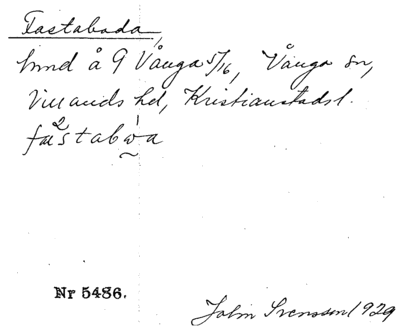 Fastaboda,
hmd å 9 Vånga 5/16, Vånga sn,
Villands hd, Kristianstads l.
Nr 5486.
John Svensson 1929